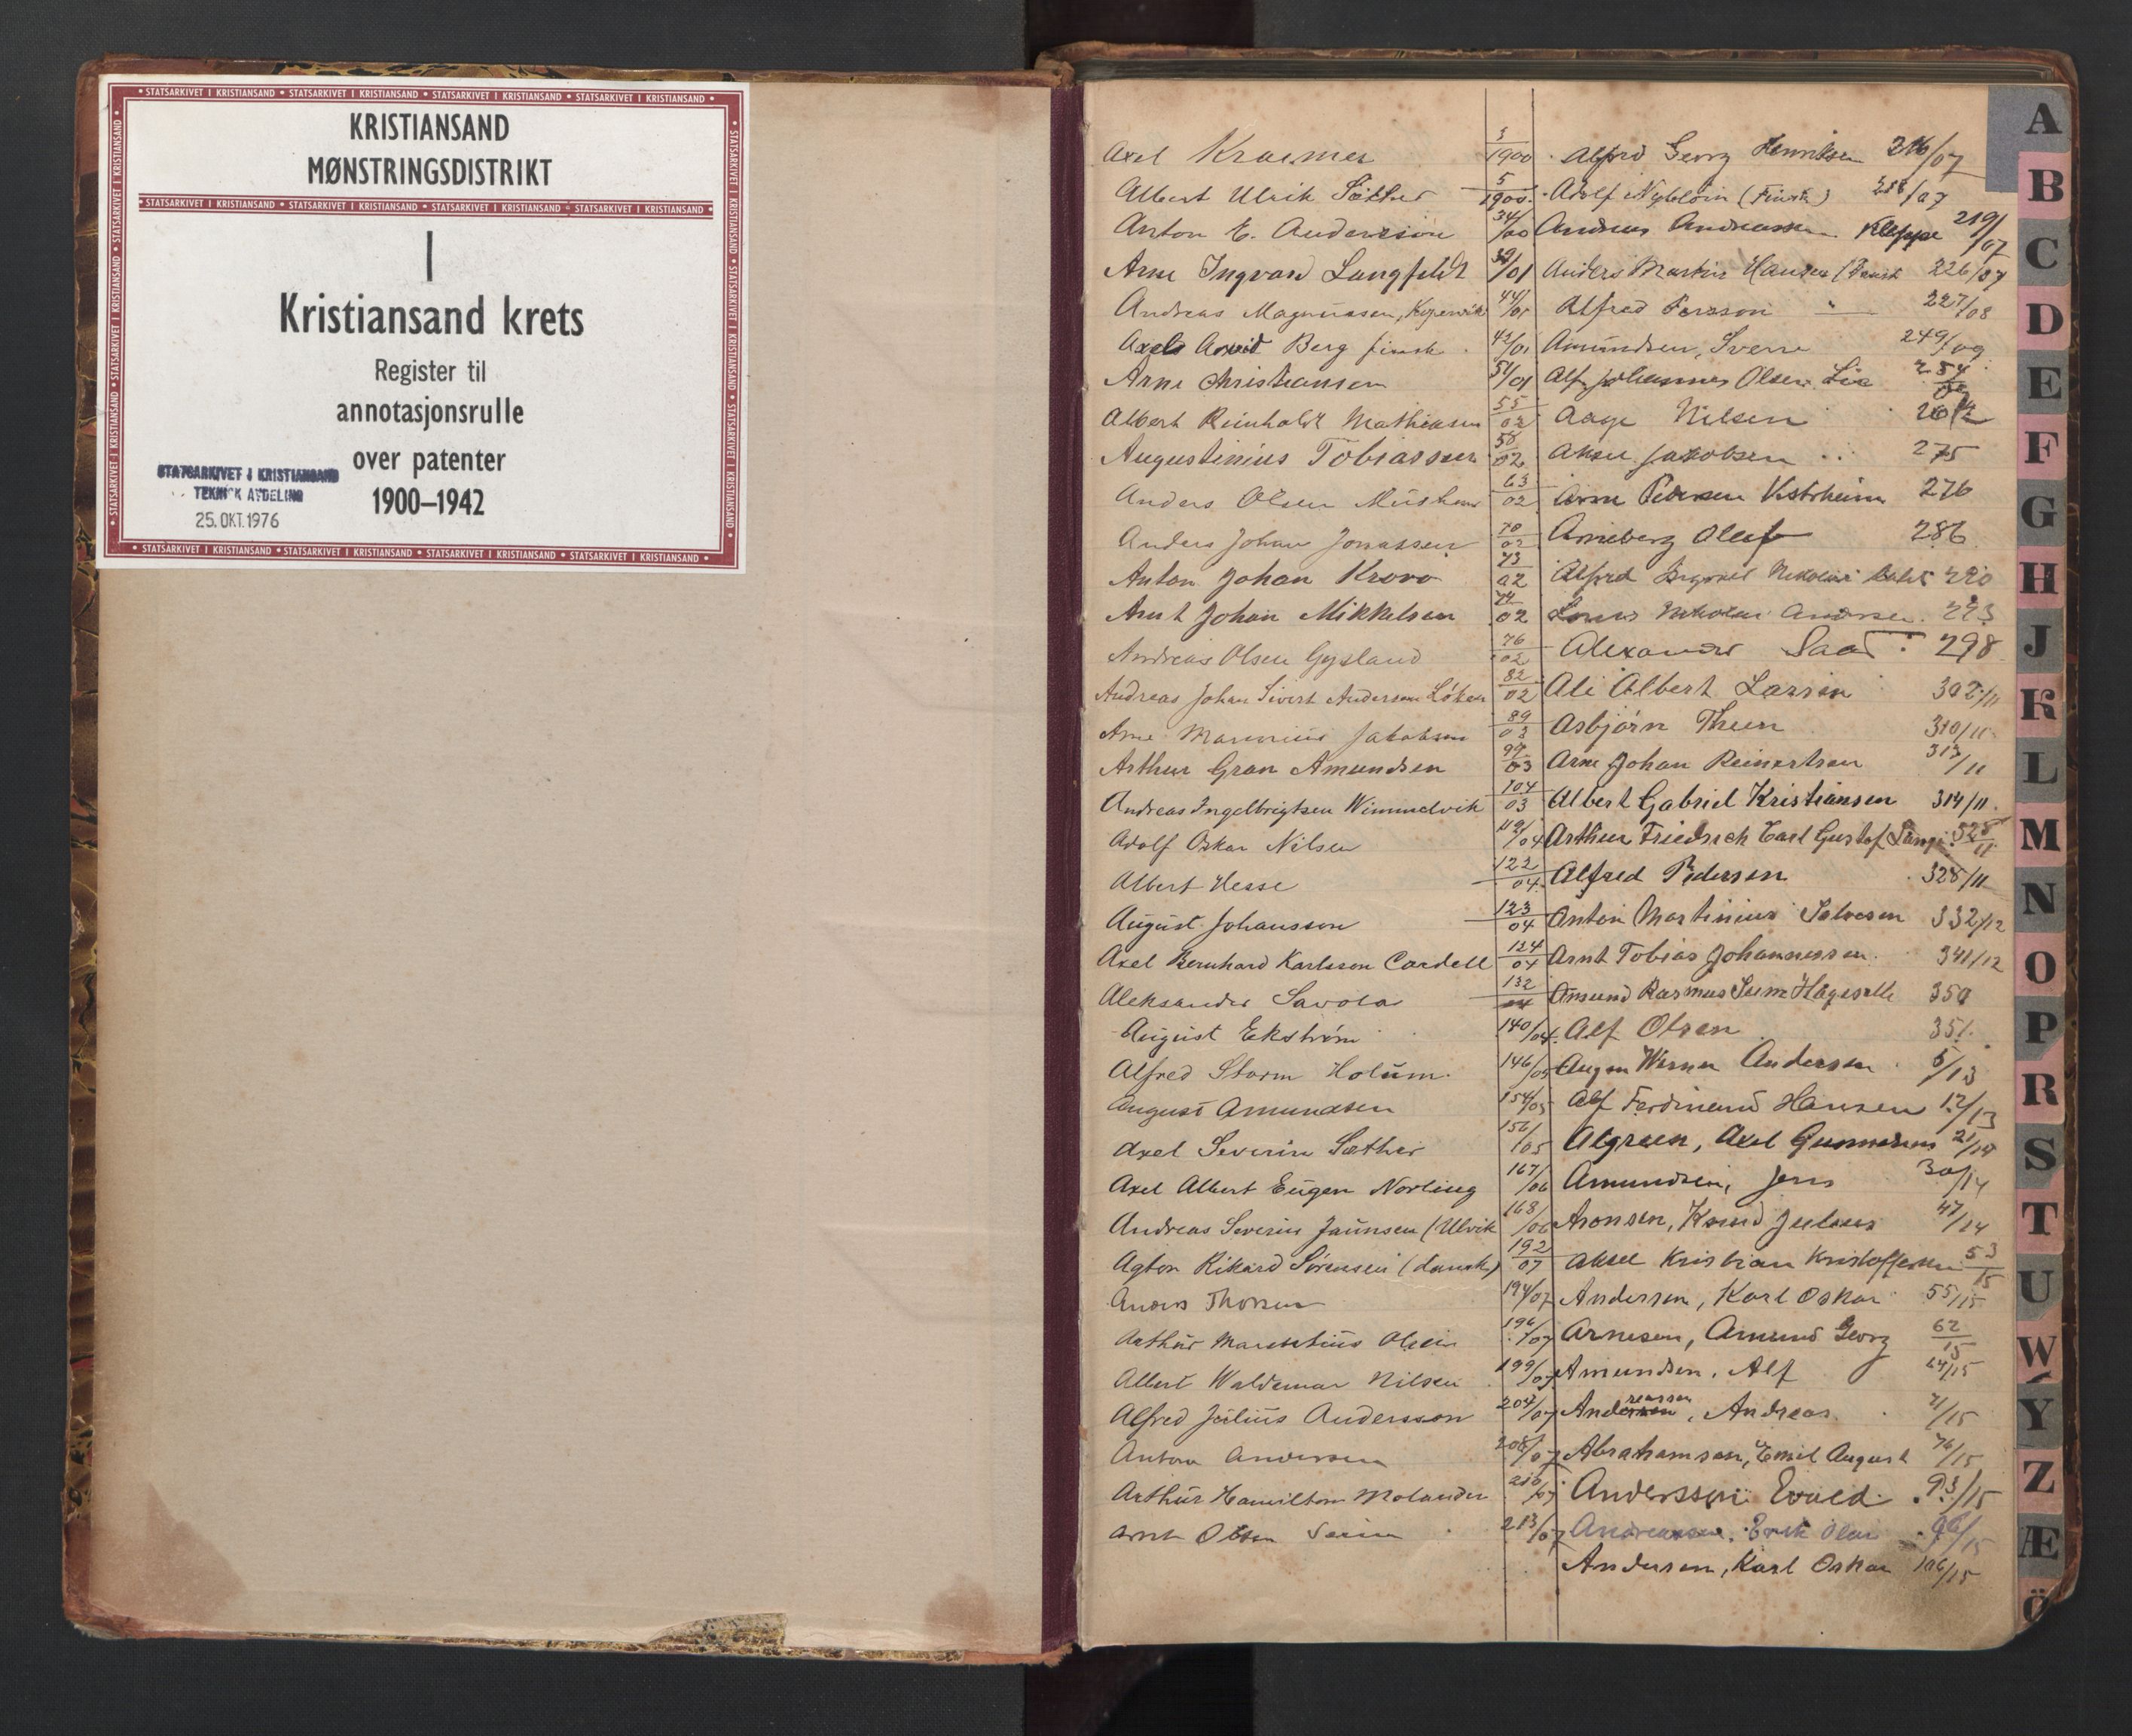 STATSARKIVET I KRISTIANSAND • STATSARKIVET I KRISTIANSAND • STATSARKIVET I KRISTIANSAND • STATSARKIVET I KRISTIANSAND
KRISTIANSAND
MØNSTRINGSDISTRIKT
STATSARKIVET I KRISTIANSAND • STATSARKIVET I KRISTIANSAND • STATSARKIVET I KRISTIANSAND • STATSARKIVET I KRISTIANSAND
I
Kristiansand krets
Register til
annotasjonsrulle
over patenter
1900–1942
STATSARKIVET I KRISTIANSAND
TEKNISK AVDELING
25. OKT. 1976
STATSARKIVET I KRISTIANSAND • STATSARKIVET I KRISTIANSAND • STATSARKIVET I KRISTIANSAND • STATSARKIVET I KRISTIANSAND
Axel Kraemer 3/1900
Albert Ulrik Sæther 5/1900
Anton E. Andersson 34/00
Arne Ingvard Langfeldt 38/01
Andreas Magnussen, Kopervik 44/01
Axel Arvid Berg finsk 42/01
Arne Christiansen 51/01
Albert Reinholdt Mathiasen 55/02
Augustinius Tobiassen 58/02
Anders Olsen 63/02
Anders Johan Jonassen 70/02
Anton Johan Krovo 73/02
Arnt Johan Mikkelsen 74/02
Andreas Olsen Gysland 76/02
Andreas Johan Sivert Andersen Löken 82/02
Arne Jakobsen 89/03
Arthur Gran Amundsen 99/03
Andreas Ingelbrigtsen Wimmelvik 104/03
Adolf Oskar Nilsen 119/04
Albert Hesse 122/04
August Johansson 123/04
Axel Bernhard Karlsson Cardell 124/04
Aleksander Savola 132/04
August Ekström 140/04
Alfred Storm Holum 146/05
August Amundsen 154/05
Axel Severin Sæther 156/05
Axel Albert Eugen Norling 167/06
Andreas Severin Jaunsen (Ulvik 168/06
Agton Rikard Sörensen (dansk) 192/07
Anders Thorsen 194/07
Arthur Olsen 196/07
Albert Waldemar Nilsen 199/07
Alfred Julius Andersson 204/07
Anton Andersen 208/07
Arthur Hamilton Molander 210/07
Arnt Olsen 213/07
Alfred Georg Henriksen 216/07
Adolf (Finsk) 218/07
Andreas Andreassen Kleppe 219/07
Anders Martin Hansen (Dansk 226/07
Alfred Persson " 227/08
Amundsen, Sverre 249/09
Alf Johannes Olsen Lia 254
Aage Nilsen
Aksel Jakobsen 275
Arne Pedersen 276
Arneberg Olef 286
Alfred Nikolai 290
Nikolai Andersen 293
Alexander Saar 298
Ali Albert Larsen 302/11
Asbjörn Theen 310/11
Arne Johan Reinertsen 313/11
Albert Gabriel Kristiansen 314/11
Arthur Friedrich Carl Gustaf Lange 325/11
Alfred Pedersen 328/11
Anton Martinius Salvesen 332/12
Arnt Tobias Johannessen 341/12
Amund Rasmus 350
Alf Olsen 351
August Werner Andersen 5/13
Alf Ferdinand Hansen 12/13
Algreen, Axel 21/14
Amundsen, Jens 30/14
Aronsen, Knud Julius 47/14
Aksel Kristian Kristoffersen 53/15
Andersen, Karl Oskar 55/15
Arnesen, Amund Georg 62/15
Amundsen, Alf 64/15
Andreassen, Andreas 71/15
Abrahamsen, Emil August 76/15
Andersson Evald 93/15
Andreassen, Erik Olai 96/15
Andersen, Karl Oskar 106/15
A
B
C
D
E
F
G
H
J
K
L
M
N
O
P
R
S
T
U
W
Y
Z
Æ
Ö